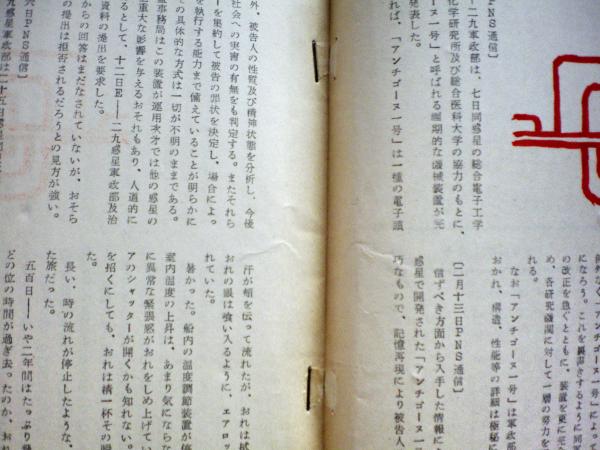 ＰＮＳ通信〕
―二九惑星軍政部は、七日同惑星の総合電子工学
化学研究所及び総合医科大学の協力のもとに、
ーヌ一号」と呼ばれる画期的な機械装置が完
発表した。
れば、「アンチゴーヌ一号」は一種の電子頭
外、被告人の性質及び精神状態を分析し、今後
社会への実害の有無をも判定する。またそれら
ーを集約して被告の罪状を決定し、場合によっ
を執行する能力まで備えていることが明らかに
の具体的な方式は一切が不明のままである。
事務局はこの装置が運用次才では他の惑星の
重大な影響を与えるおそれもあり、人道的に
るとして、十二日Ｅ―二九惑星軍政部及治
資料の提出を要求した。
からの回答はまだなされていないが、おそら
の提出は拒否されるだろうとの見方が強い。
六日ＰＮＳ通信〕
によって
になろう。これを裏書きするように同軍
の改正を急ぐとともに、装置を更に完
め、各研究機関に対して一層の努力を
れる。
なお「アンチゴーヌ一号」は軍政部
おかれ、構造、性能等の詳細は極秘に
〔二月十三日ＰＮＳ通信〕
信ずべき方面から入手した情報によ
惑星で開発された「アンチゴーヌ一号
巧なもので、記憶再現により被告人
汗が頬を伝って流れたが、おれは拭
おれの眼は喰い入るように、エアロッ
れていた。
暑かった。船内の温度調節装置が停
室内温度の上昇は、あまり気にならな
に異常な緊張感がおれをしめ上げてい
アのシャッターが開くかも知れない。
を招くにしても、おれは精一杯その瞬
た。
長い、時の流れが停止したような、
た旅だった。
五百日――いや二年間はたっぷり
どの位の時間が過ぎ去ったのか、おれ